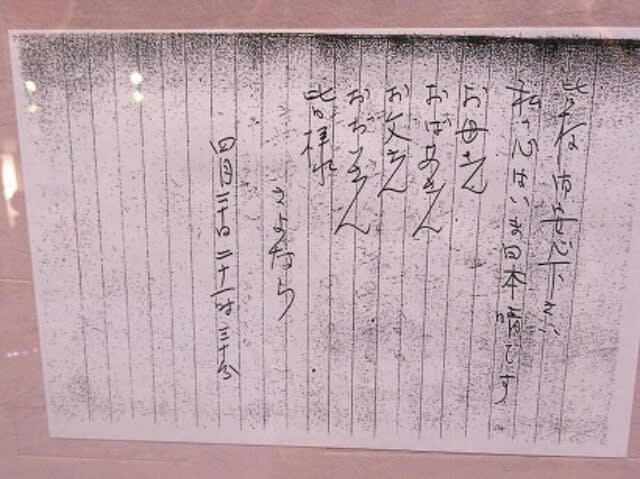 下さい
私の心はいま日本晴です
お母さん
おばあさん
お父さん
おぢいさん
皆様
さよなら
四月三十日二十一時三十分